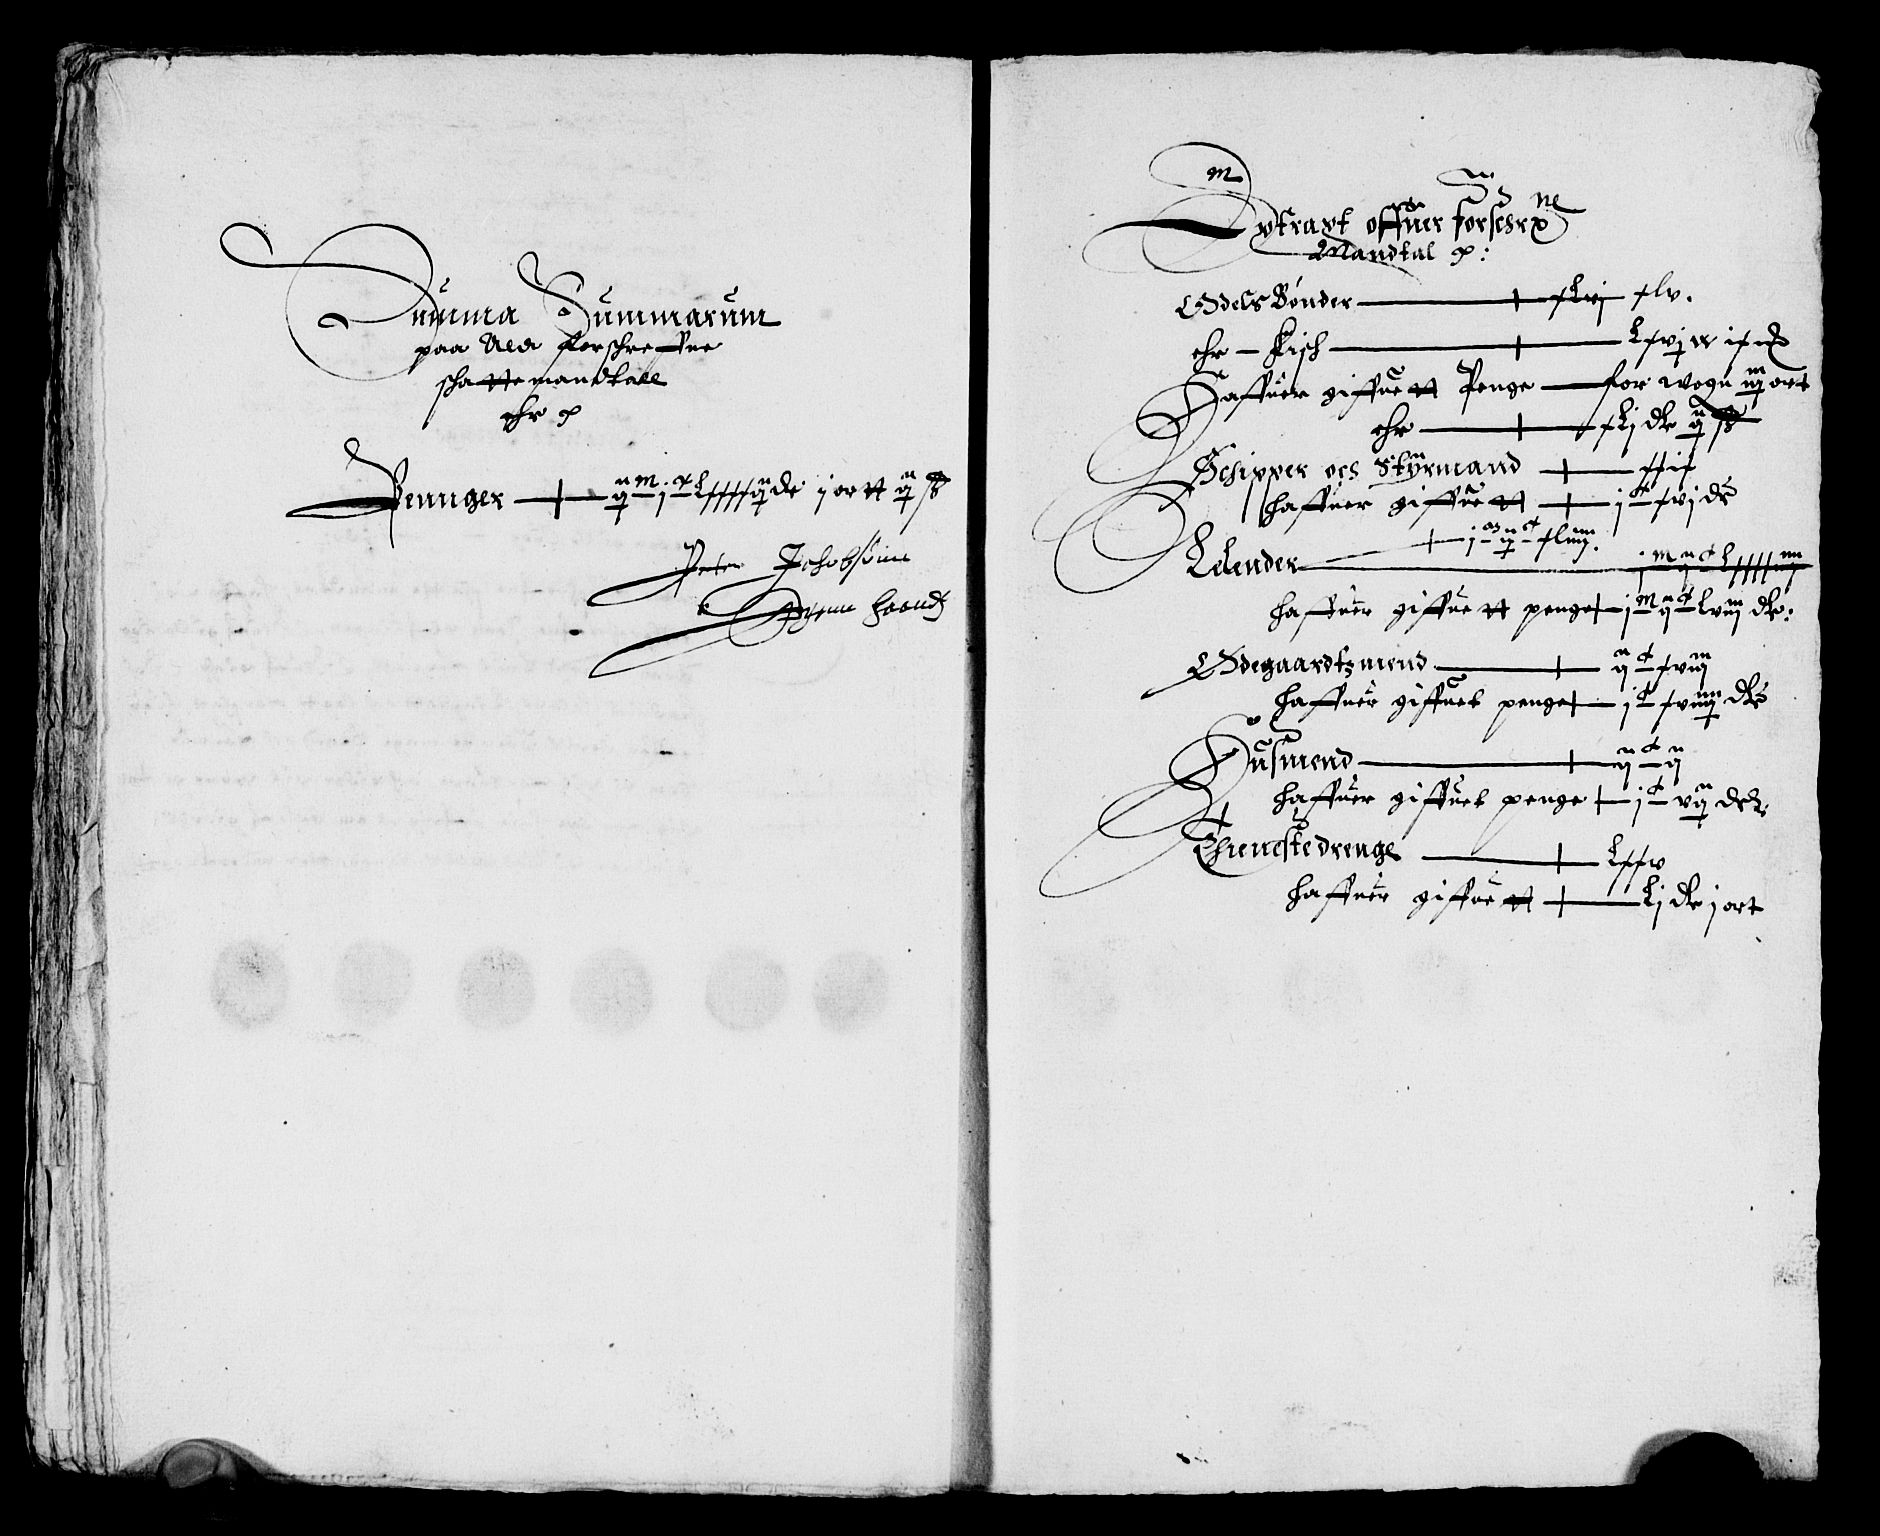 Summa Summarum
paa alld forschreffne
schatte mandtall
ehr
Penunger — ij m j c lxxxxij dr j ortt ij ß
Peter Jchobsönn
Egenn haandt
Extraxt offuer forschr ne
Mandtal
Odels Bönder — xlvj xlv.
ehr — Fisch — lxvj w
Haffuer giffuett Penge — for wogn iij ort
ehr — xlj dr ij ß
Schipper och Styrmand — xxix
haffuer giffuett — j c xvj dr
Lelender — j m ij c xliiij.
j m ij c lxxxxiiij
haffuer giffuett penge — j m ij c lviij dr:
Ödegaardtzmend — ij c xviij
haffuer giffuet penge — j c xviiij dr
Husmend — ij c ij
haffuer giffuet penge — j c vij dr.
Thienestedrenge — lxxv
haffuer giffuett — lj dr j ort